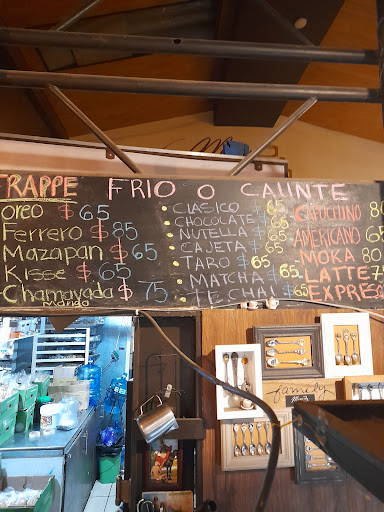 FRAPPE FRIO O CALINTE
oreo $65
Ferrero $85
Mazapan $65
Kisse $65
Chamoyada $75
mango
CLASICO 65
CHOCOLATE 65
NUTELLA $65
CAJETA $65
TARO $65
MATCHA $65
TE CHAI $65
CAPUCHINO 80
AMERICANO 65
MOKA 80
LATTE 7
EXPRESO
family